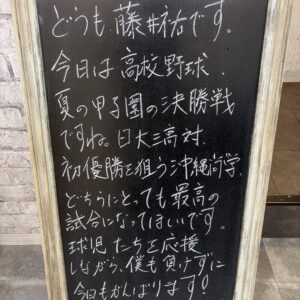 どうも、藤井祐です。
今日は高校野球、
夏の甲子園の決勝戦
ですね。日大三高対
初優勝を狙う沖縄尚学。
どちらにとっても最高の
試合になってほしいです。
球児たちを応援
しながら、僕も負けずに
今日もがんばります!